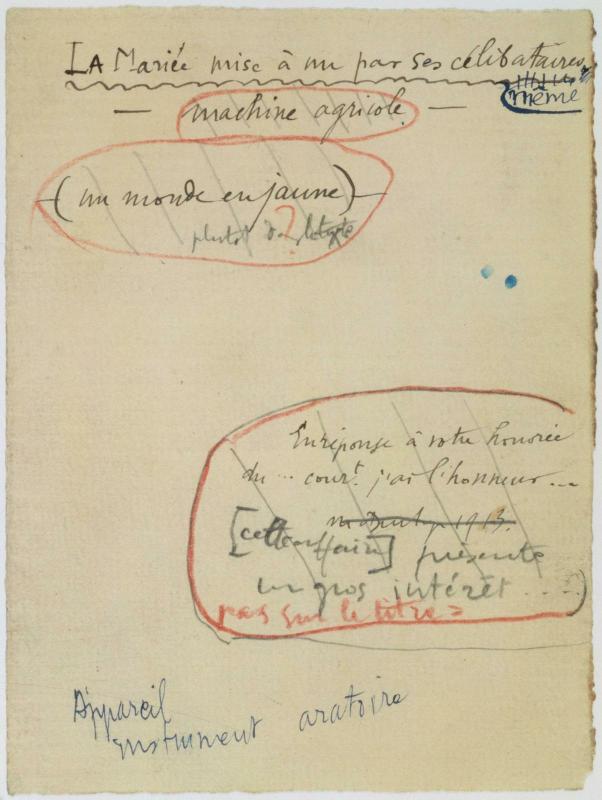 LA Mariée mise à nu par ses célibataires,
même
— machine agricole —
(un monde en jaune)
?
plutôt dans le texte
En réponse à votre honorée
du ... court. j'ai l'honneur ...
1913.
[cette affaire] présente
un gros intérêt ....)
pas sur le titre =
Appareil
instrument aratoire